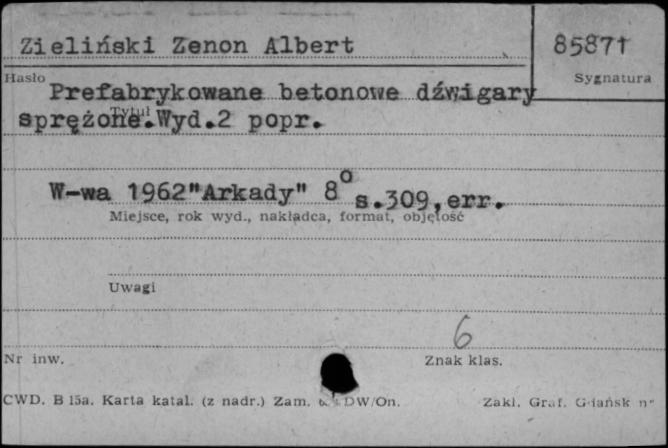 Zieliński Zenon Albert 85871
Hasło Sygnatura
Prefabrykowane betonowe dźwigary
Tytuł
sprężone.Wyd.2 popr.
W-wa 1962"Arkady" 8o s.309,err.
Miejsce, rok wyd., nakładca, format, objętość
Uwagi
6
Nr inw. Znak klas.
CWD. B 15a. Karta katal. (z nadr.) Zam. DW/On. Zakl. Graf. Gdańsk